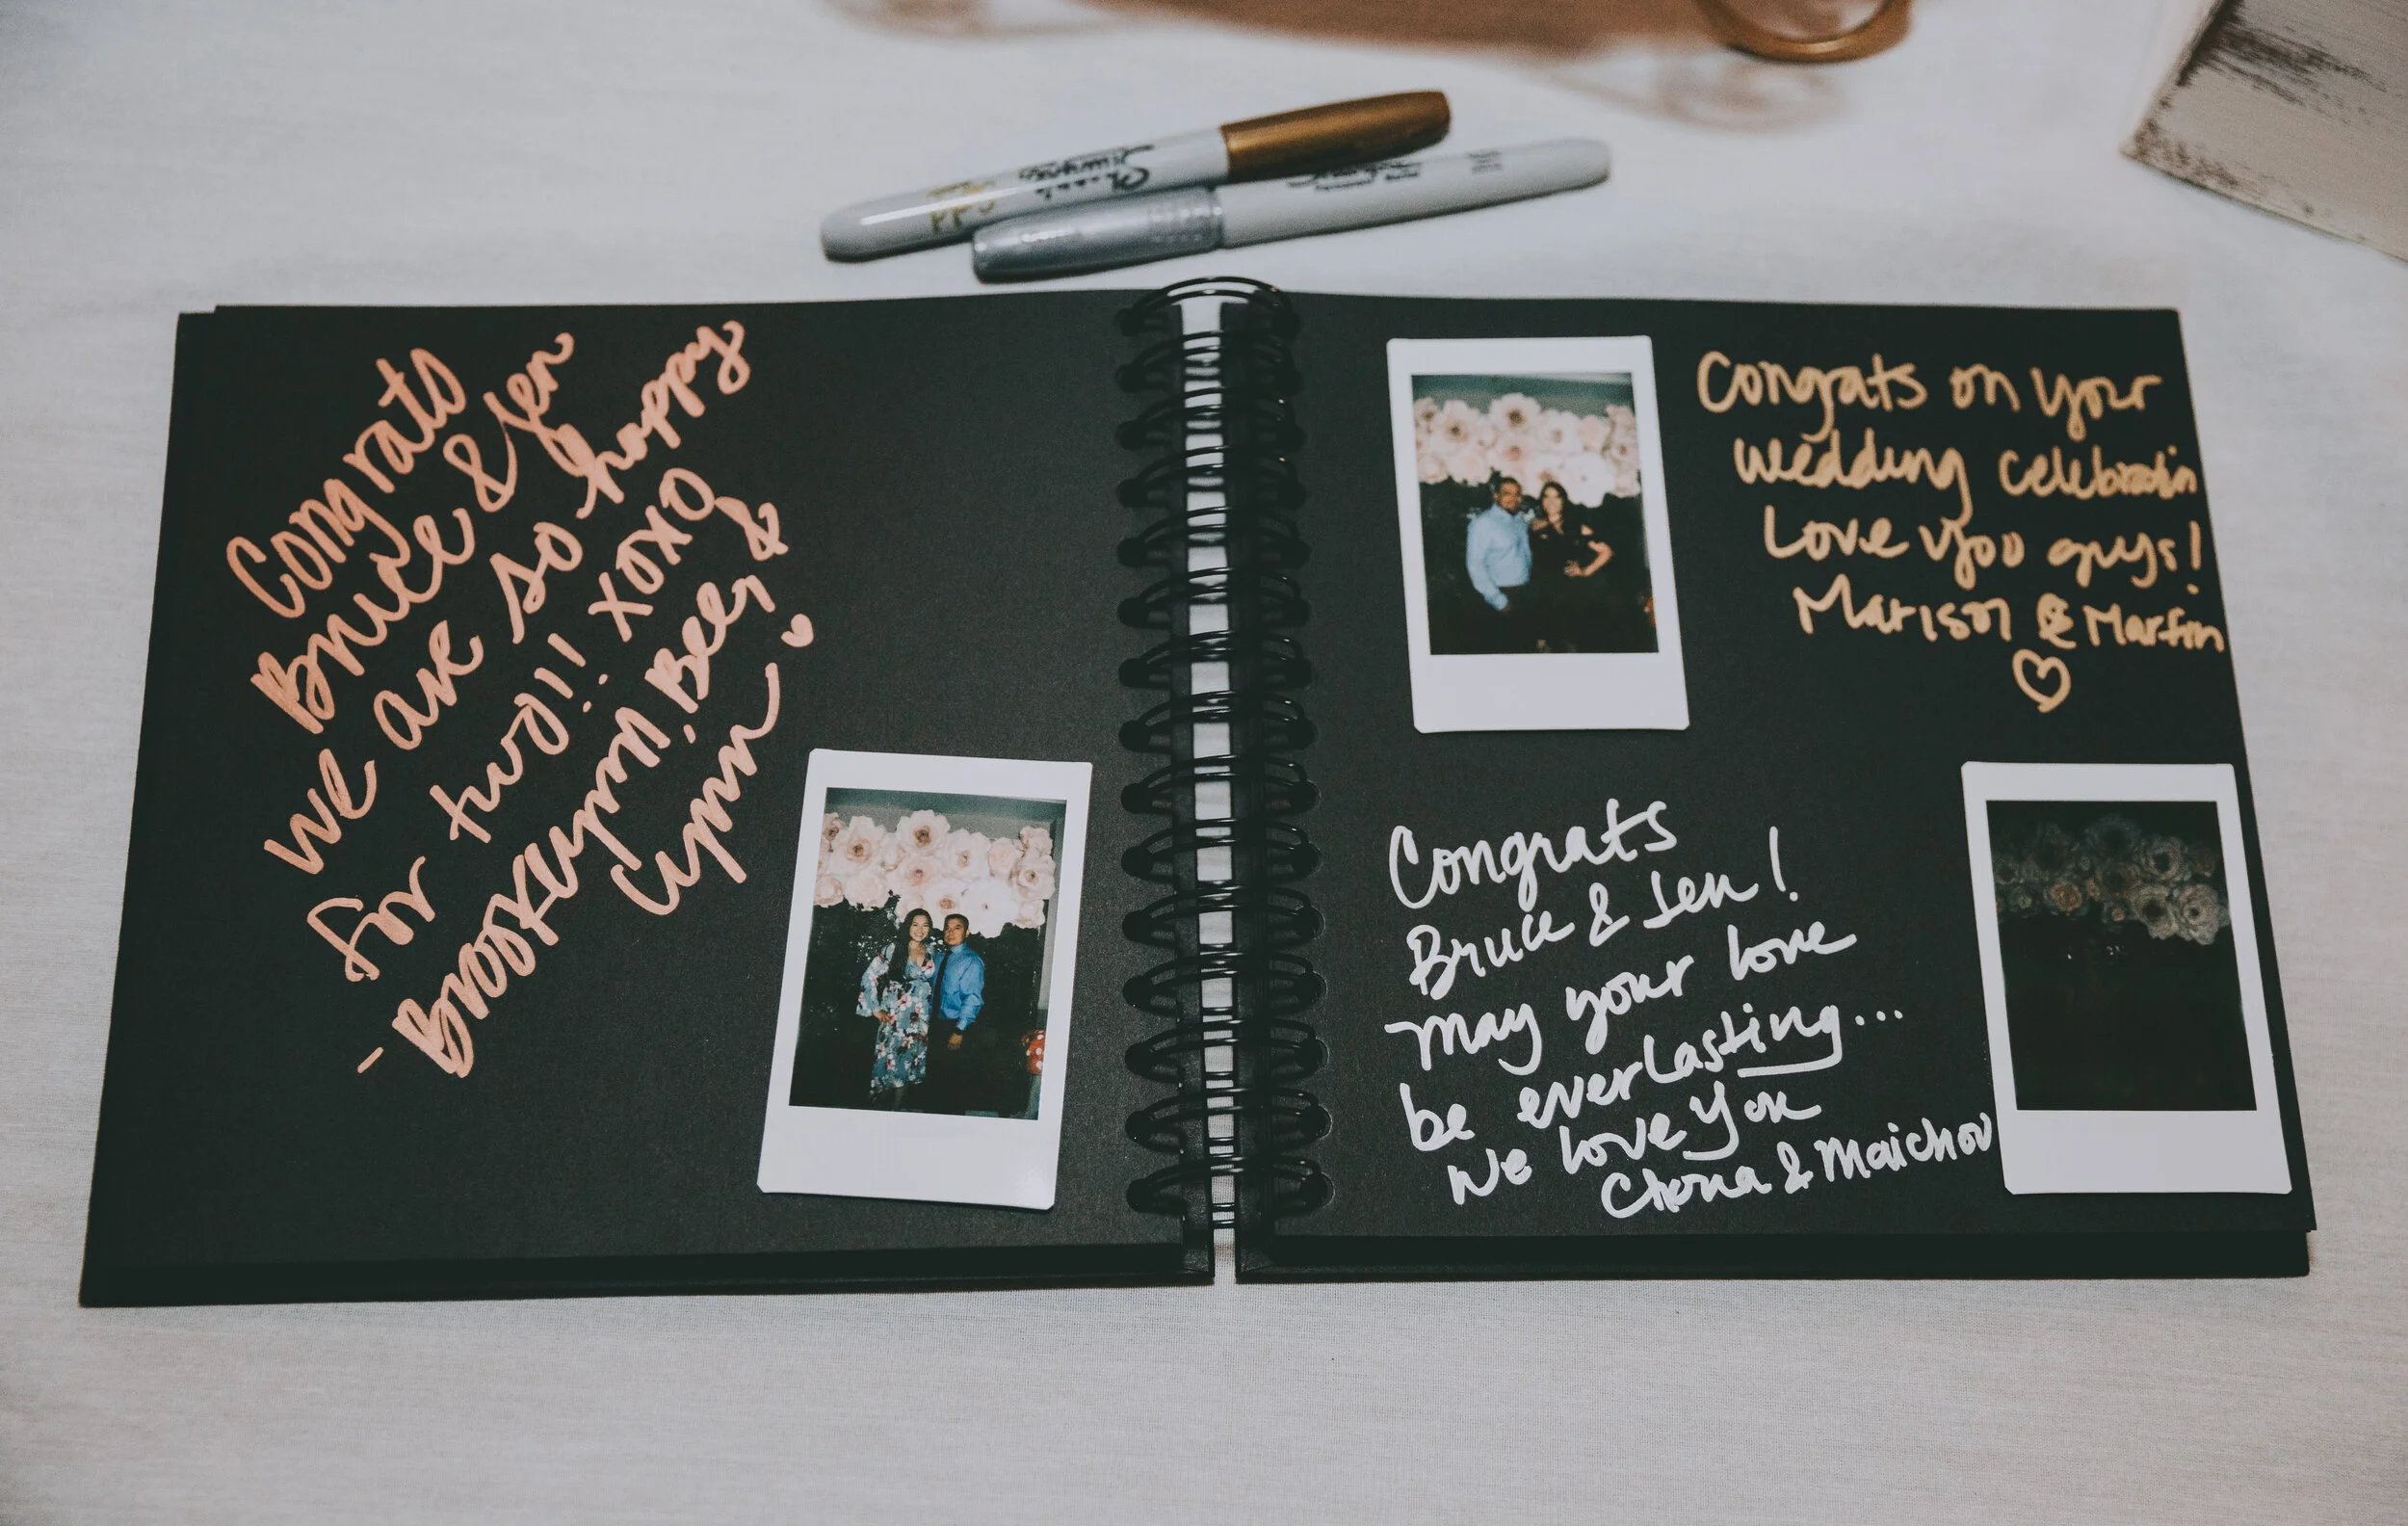 Congrats
Bruce & Jen
we are so happy
for two!! xoxo
- Brooklynn, Beej &
Lynn
Congrats on your
wedding celebration
Love you guys!
Marison & Martin
Congrats
Bruce & Jen!
may your love
be everlasting...
We love you
Chona & Maichou
Sharpie